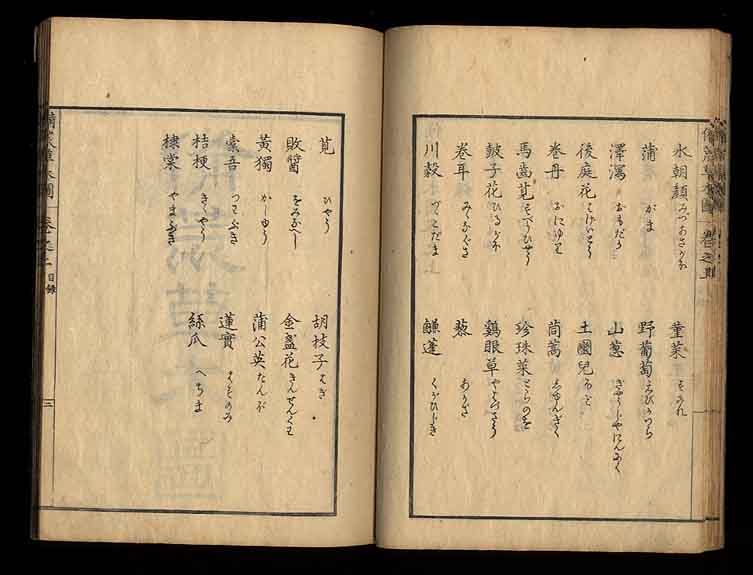 備荒草木圖
水朝顏 みづあさがほ 菫菜 すみれ
蒲 がま 野葡萄 えびかつら
澤瀉 おもだか 山葱 ぎやうじやにんにく
後庭花 はげいとう 土圞兒 ほど
巻丹 おにゆり 茼蒿 しゆんぎく
馬齒莧 すべりひやう 珍珠菜 とらのを
皷子花 ひるがほ 鷄眼草 やはづさう
巻耳 みゝなぐさ 藜 あかざ
川穀 づゞこだま 鹻蓬 くがひじき
莧 ひやう 胡枝子 はぎ
敗醤 をみなへし 金盞花 きんせんくわ
黄獨 かしゆう 蒲公英 たんぽ
橐吾 つわぶき 蓮實 はすのみ
桔梗 きゝやう 絲瓜 へちま
棣棠 やまぶき
備荒草木圖 卷之上 目録 三